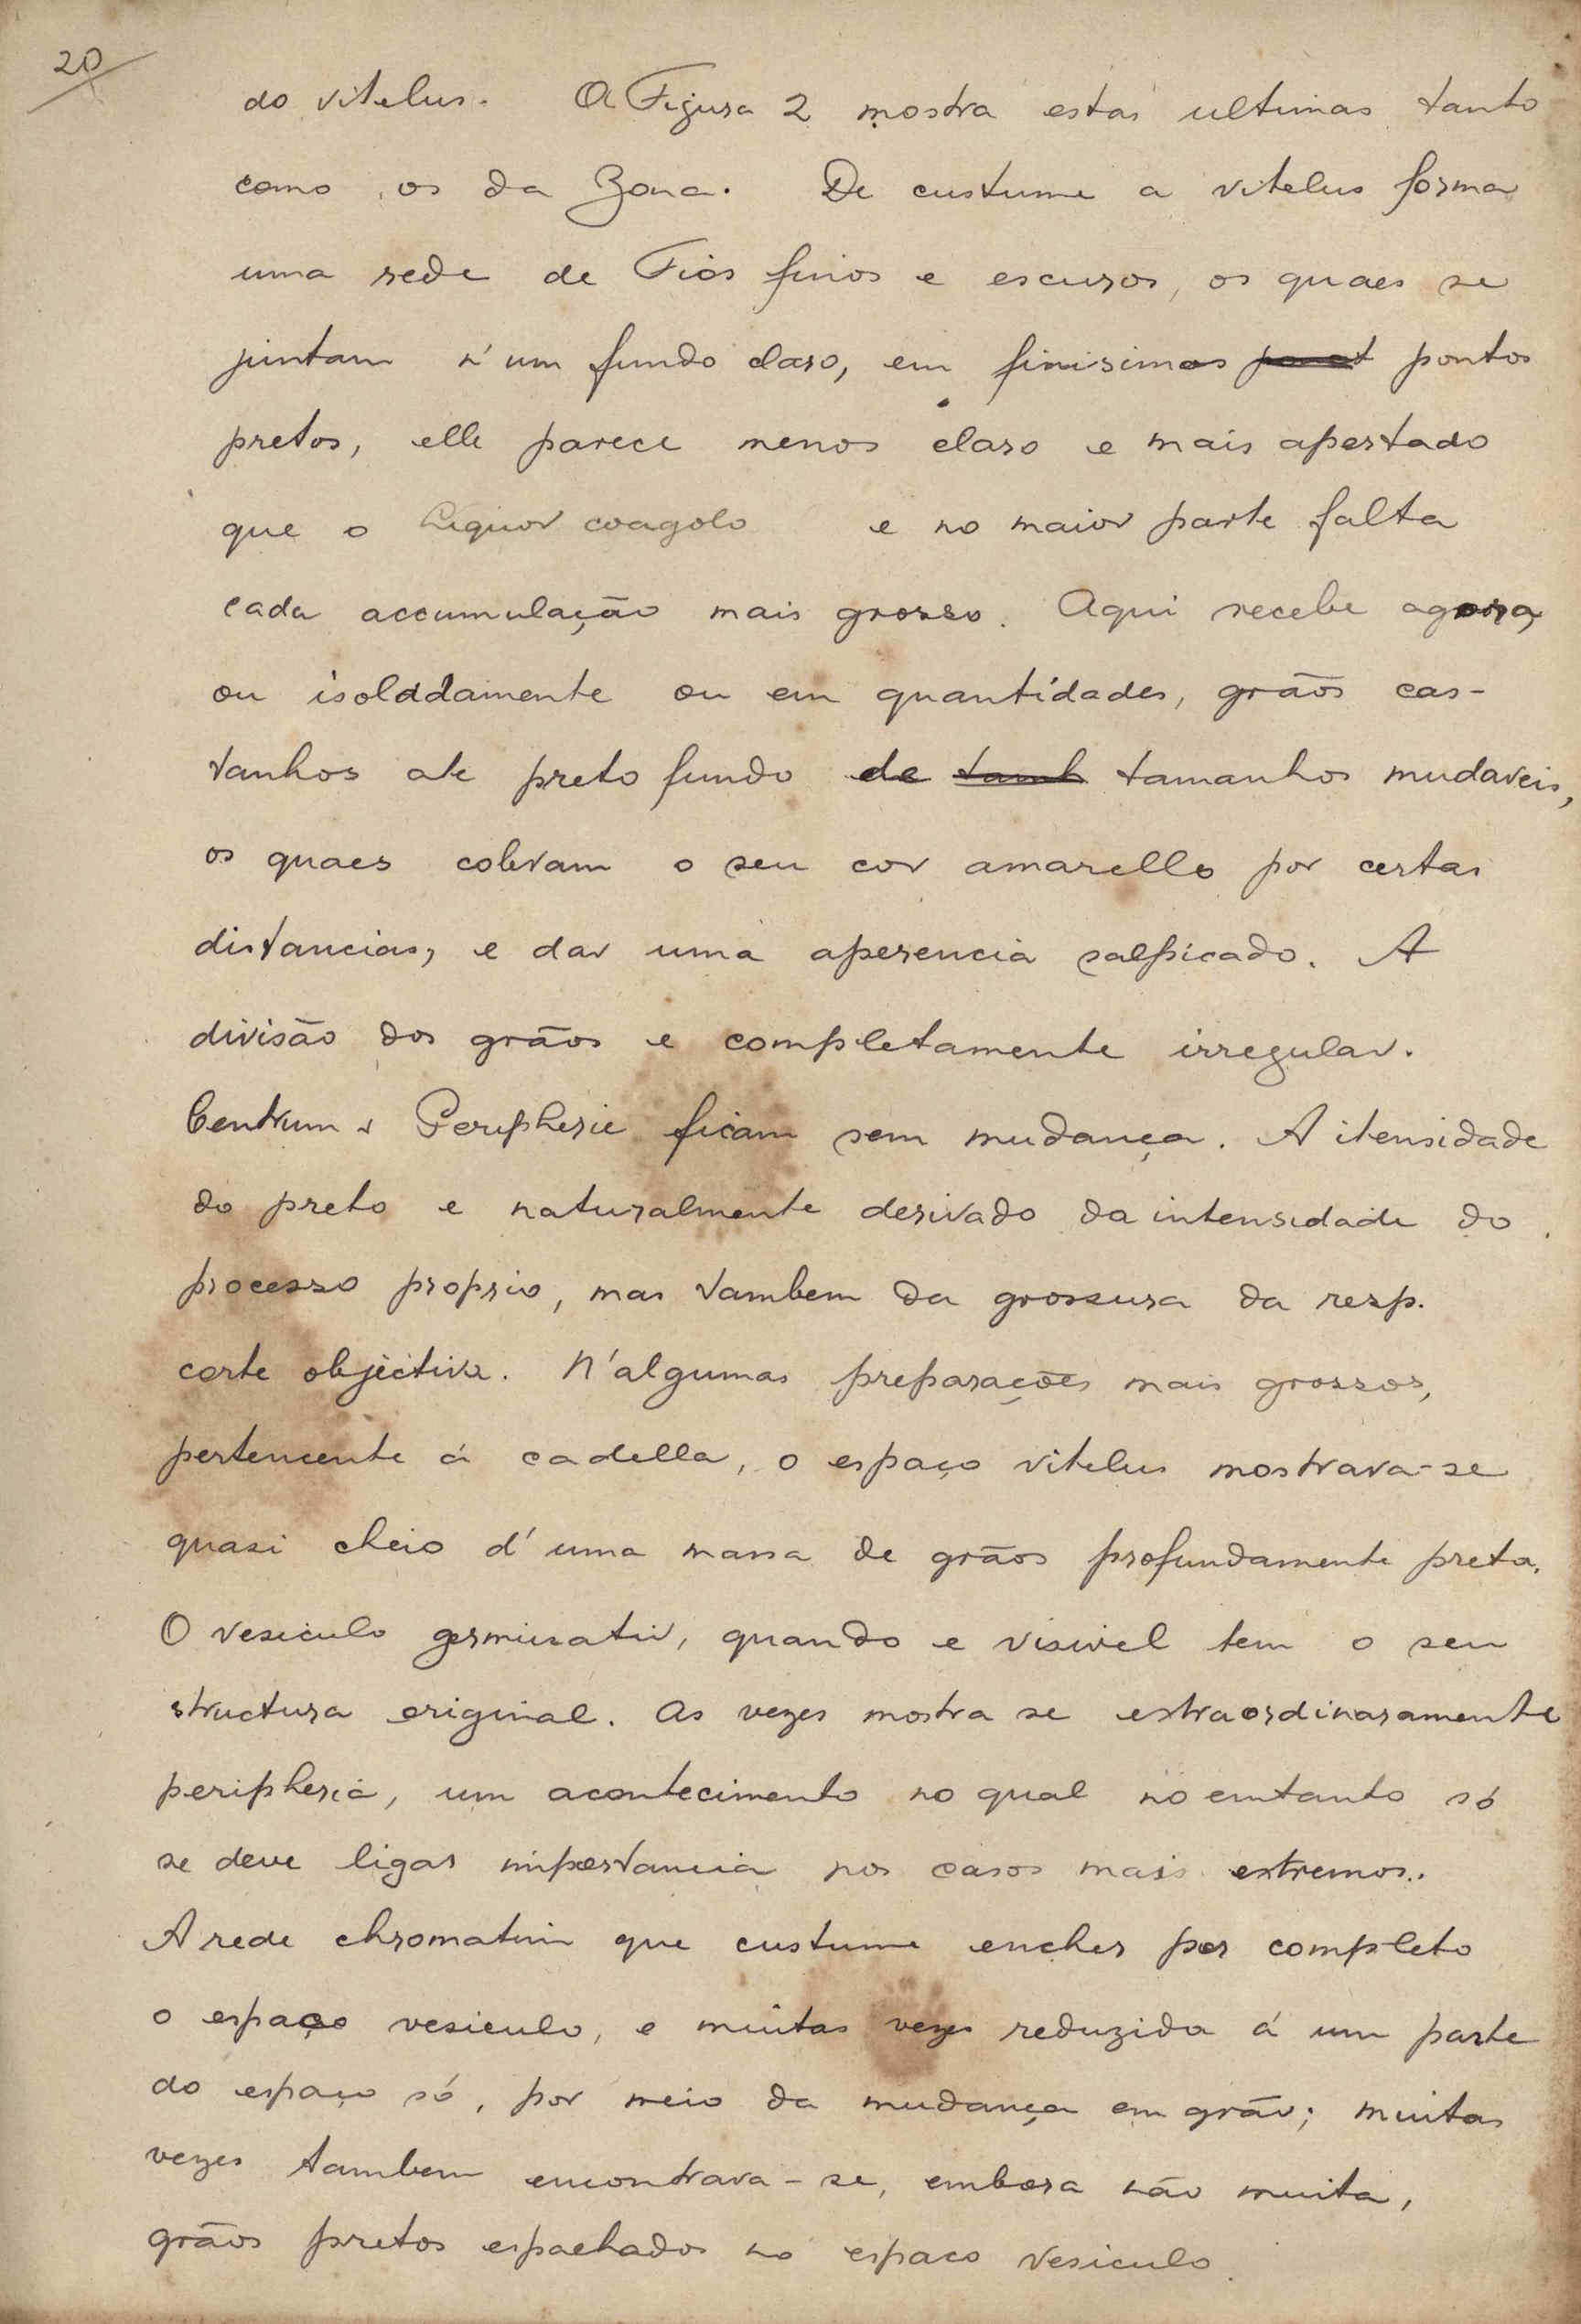 20
do vitelus. A Figura 2 mostra estas ultimas tanto
como os da Zona. De custume a vitelus forma
uma rede de Fios finos e escuros, os quaes se
juntam n'um fundo claro, em finisimos pontos
pretos, elle parece menos claro e mais apertado
que o Liquor coagolo e no maior parte falta
cada accumulação mais grosso. Aqui recebe agora,
ou isoladamente ou em quantidades, grãos cas-
tanhos ate preto fundo de tamanhos mudaveis,
os quaes cobram o seu cor amarello por certas
distancias, e dar uma aperencia salpicado. A
divisão dos grãos e completamente irregular.
Centrum e Peripherie ficam sem mudança. A itensidade
do preto e naturalmente derivado da intensidade do
processo proprio, mas tambem da grossura da resp.
corte objectiva. N'algumas preparações mais grossos,
pertencente á cadella, o espaço vitelus mostrava-se
quasi cheio d'uma massa de grãos profundamente preta.
O vesiculo germinativ, quando e visivel tem o seu
structura original. As vezes mostra se extraordinaramente
peripheria, um acontecimento no qual no emtanto só
se deve ligar importancia nos casos mais extremos.
A rede chromatin que custume encher por completo
o espaço vesiculo, e muitas vezes reduzida á um parte
do espaço só, por meio da mudança em grão; muitas
vezes tambem encontrava-se, embora não muita,
grãos pretos espachados no espaco vesiculo.